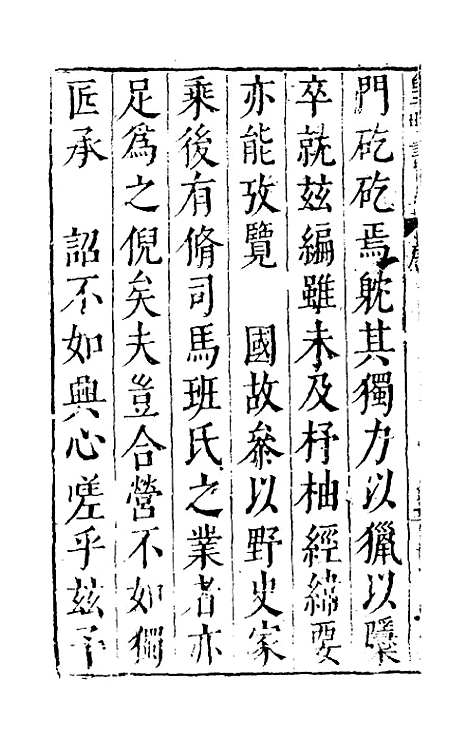 門矻矻焉躭其獨力以獵以隱
卒就兹編雖未及杼柚經緯要
亦能攷覽　國故叅以野史家
乘後有脩司馬班氏之業者亦
足爲之倪矣夫豈合營不如獨
匠承　詔不如興心嗟乎兹予